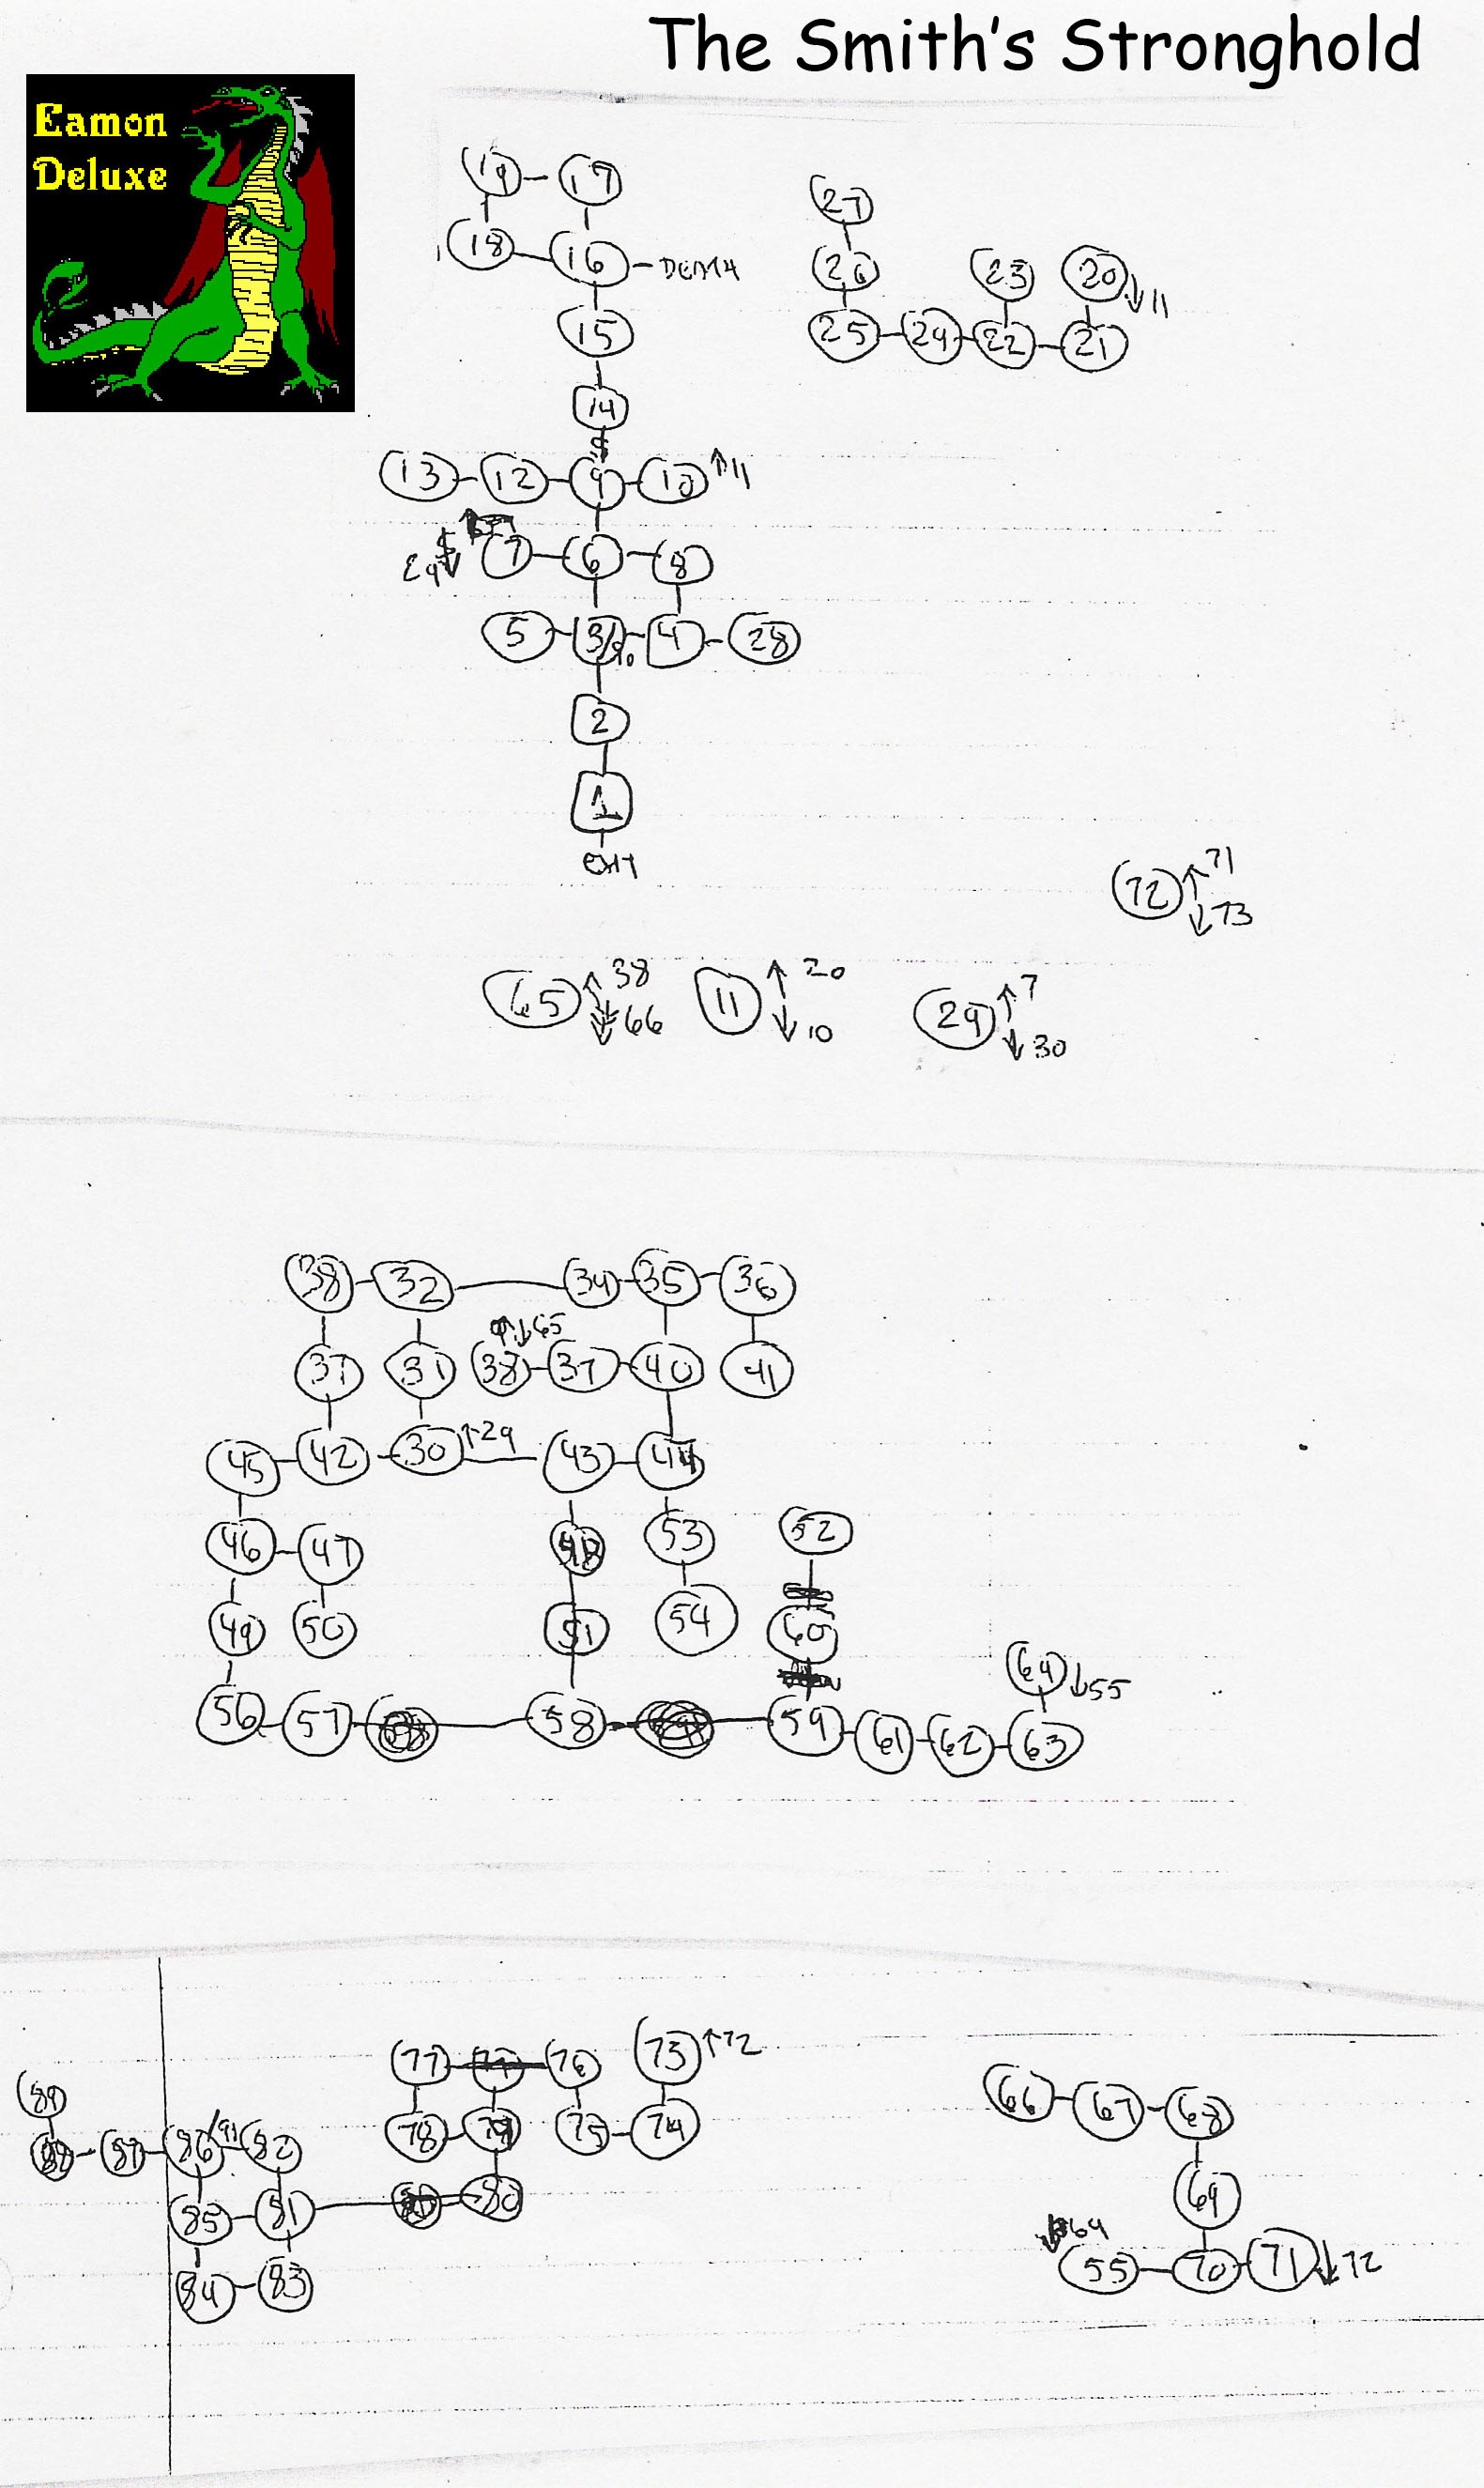 The Smith's Stronghold
Eamon
Deluxe
19 17
18 16 DEATH
15
14
13 12 9 10 11
29 7 6 8
5 3 4 28
2
1
EXIT
27
26 23 20 11
25 24 22 21
72 71
73
65 38
66
11 20
10
29 7
30
38 32 34 35 36
65
37 31 38 37 40 41
45 42 30 29 43 44
46 47 48 53 52
49 50 51 54 60
64 55
56 57 58 59 61 62 63
77 76 73 72
89
78 79 75 74
87 86 82
85 81 80
84 83
66 67 68
69
64
55 70 71 72